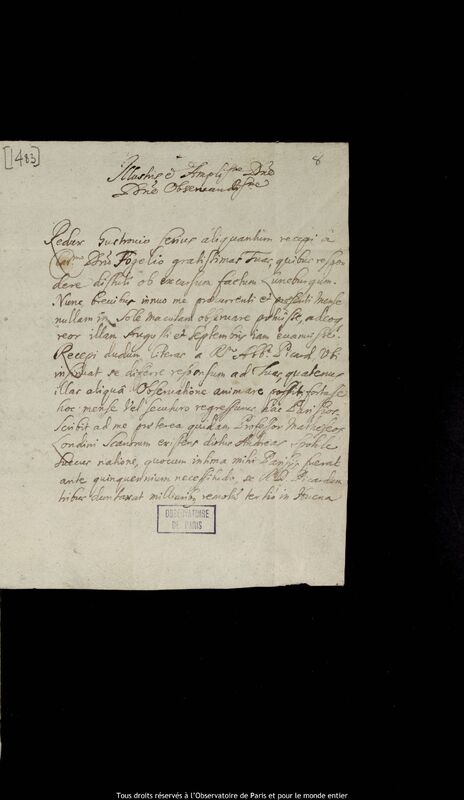 [1483]
8
Illustris et Ampliss.me Dne
Dne Observandissime
Redux Gustrovio serius aliquantum recepi à
Clar.mo Dno Fogelio gratissimas Tuas, quibus respon
dere distuli ob excursum factum Luneburgum.
Nunc brevibus innuo me præcurrenti et præsenti mense
nullam in Sole maculam observare potuisse, adeoq
reor illam Augusti et Septembris jam evanuisse.
Recepi dudum literas a R. Abb. Picard ubi
insinuat se differre responsum ad Tuas, quatenus
illas aliquâ Observatione animare possit, fortasse
hoc mense vel secuturo regressurus hac Parisios.
Scribit ad me præterea quidam Professor Matheseos
Londini Scanorum existens dictus Andreas Spole
Suecus natione, quocum intima mihi Parisijs fuerat
ante quinquennium necessitudo, se R.D. Picardum
tribus duntaxat milliaribus remotis ter hic in Huena
OBSERVATOIRE
DE PARIS
Tous droits réservés à l'Observatoire de Paris et pour le monde entier